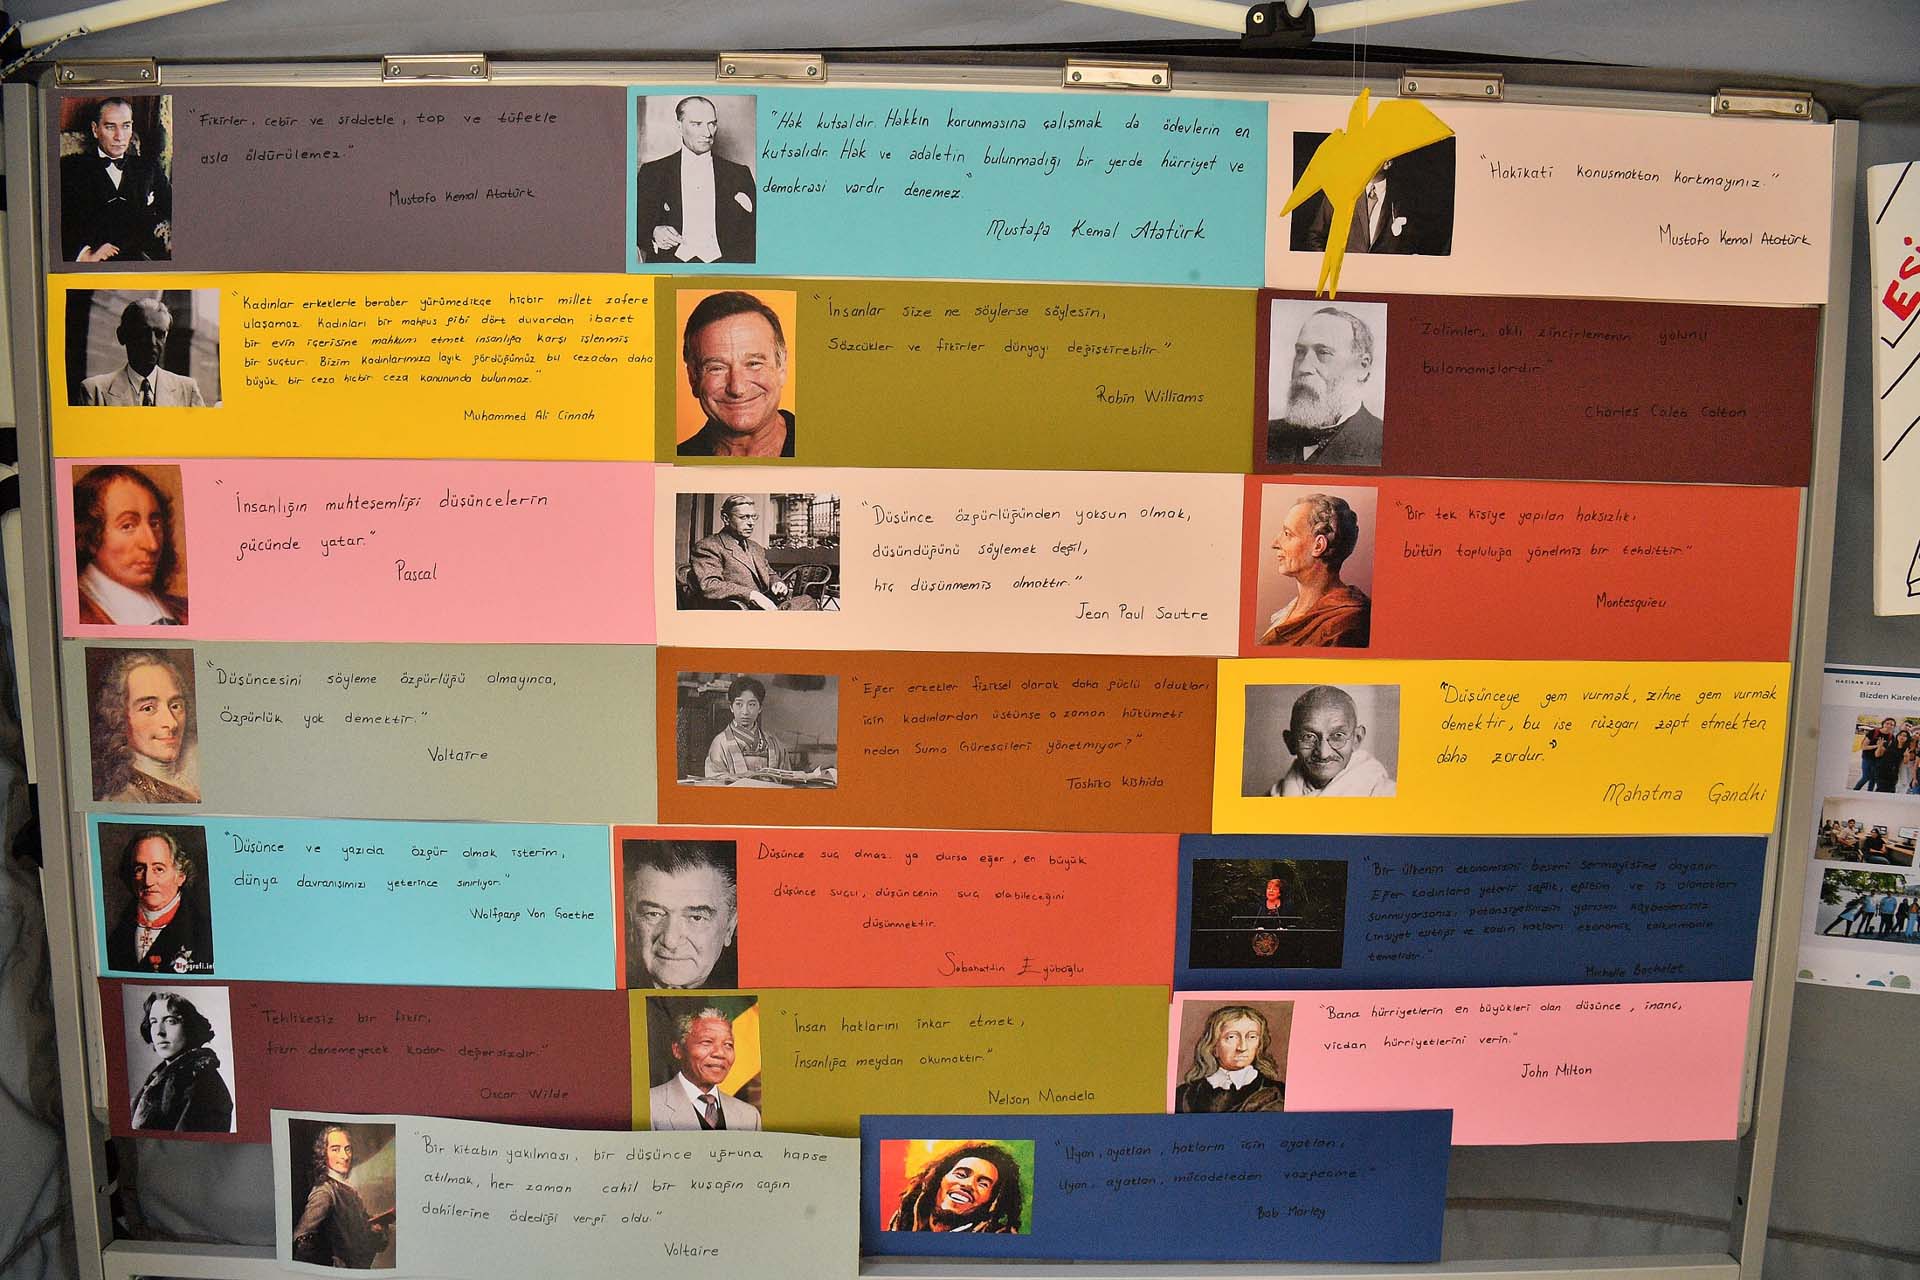 "Fikirler, cebir ve şiddetle, top ve tüfekle
asla öldürülemez."
Mustafa Kemal Atatürk
"Hak kutsaldır. Hakkın korunmasına çalışmak da ödevlerin en
kutsalıdır. Hak ve adaletin bulunmadığı bir yerde hürriyet ve
demokrasi vardır denemez."
Mustafa Kemal Atatürk
"Hakikati konuşmaktan korkmayınız."
Mustafa Kemal Atatürk
"Kadınlar erkeklerle beraber yürümedikçe hiçbir millet zafere
ulaşamaz. Kadınları bir mahpus gibi dört duvardan ibaret
bir evin içerisine mahkum etmek insanlığa karşı işlenmiş
bir suçtur. Bizim kadınlarımıza layık gördüğümüz bu cezadan daha
büyük bir ceza hiçbir ceza kanununda bulunmaz."
Muhammed Ali Cinnah
"İnsanlar size ne söylerse söylesin,
Sözcükler ve fikirler dünyayı değiştirebilir."
Robin Williams
"Zalimler, aklı zincirlemenin yolunu
bulamamışlardır"
Charles Caleb Colton
"İnsanlığın muhteşemliği düşüncelerin
gücünde yatar."
Pascal
"Düşünce özgürlüğünden yoksun olmak,
düşündüğünü söylemek değil,
hiç düşünmemiş olmaktır."
Jean Paul Sautre
"Bir tek kişiye yapılan haksızlık,
bütün topluluğa yönelmiş bir tehdittir."
Montesquieu
"Düşüncesini söyleme özgürlüğü olmayınca,
Özgürlük yok demektir."
Voltaire
"Eğer erkekler fiziksel olarak daha güçlü oldukları
için kadınlardan üstünse o zaman hükümeti
neden Sumo Güreşçileri yönetmiyor?"
Toshiko Kishida
"Düşünceye gem vurmak, zihne gem vurmak
demektir, bu ise rüzgarı zapt etmekten
daha zordur."
Mahatma Gandhi
"Düşünce ve yazıda özgür olmak isterim,
dünya davranışımızı yeterince sınırlıyor."
Wolfgang Von Goethe
Düşünce suç olmaz. ya dursa eğer, en büyük
düşünce suçu, düşüncenin suç olabileceğini
düşünmektir.
Sabahattin Eyüboğlu
"Bir ülkenin ekonomisini beşeri sermayesine dayanır.
Eğer kadınlara yeterli sağlık, eğitim ve iş olanakları
sunmuyorsanız, potansiyelinizin yarısını kaybedersiniz.
Cinsiyet eşitliği ve kadın hakları ekonomik kalkınmanın
temelidir."
Michelle Bachelet
"Tehlikesiz bir fikir,
fikir denemeyecek kadar değersizdir."
Oscar Wilde
"İnsan haklarını inkar etmek,
İnsanlığa meydan okumaktır."
Nelson Mandela
"Bana hürriyetlerin en büyükleri olan düşünce, inanç,
vicdan hürriyetlerini verin."
John Milton
"Bir kitabın yakılması, bir düşünce uğruna hapse
atılmak, her zaman cahil bir kuşağın çağın
dahilerine ödediği vergi oldu."
Voltaire
"Uyan, ayaklan, hakların için ayaklan,
Uyan, ayaklan, mücadeleden vazgeçme"
Bob Marley
HAZİRAN 2022
Bizden Kareler